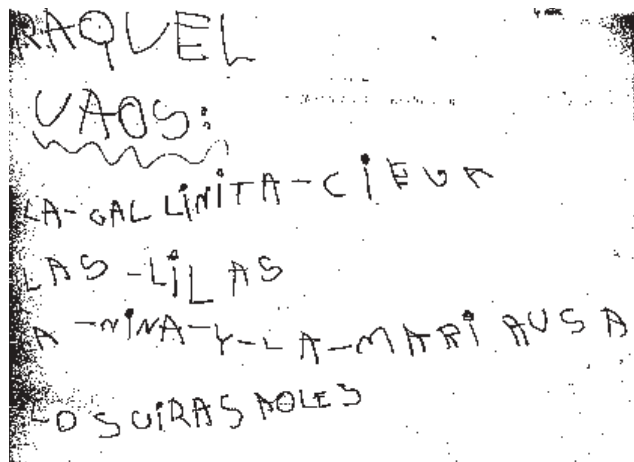 RAQUEL
UAOS:
LA-GALLINITA-CIEUA
LAS-LILAS
LA-NINA-Y-LA-MARIAUSA
LOSUIRASAOLES